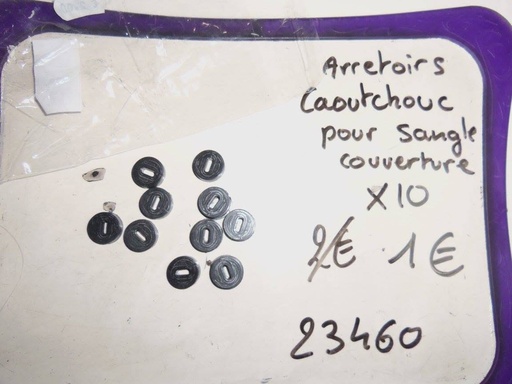 Arretoirs
Caoutchouc
pour Sangle
couverture
X10
2€ . 1€
23460